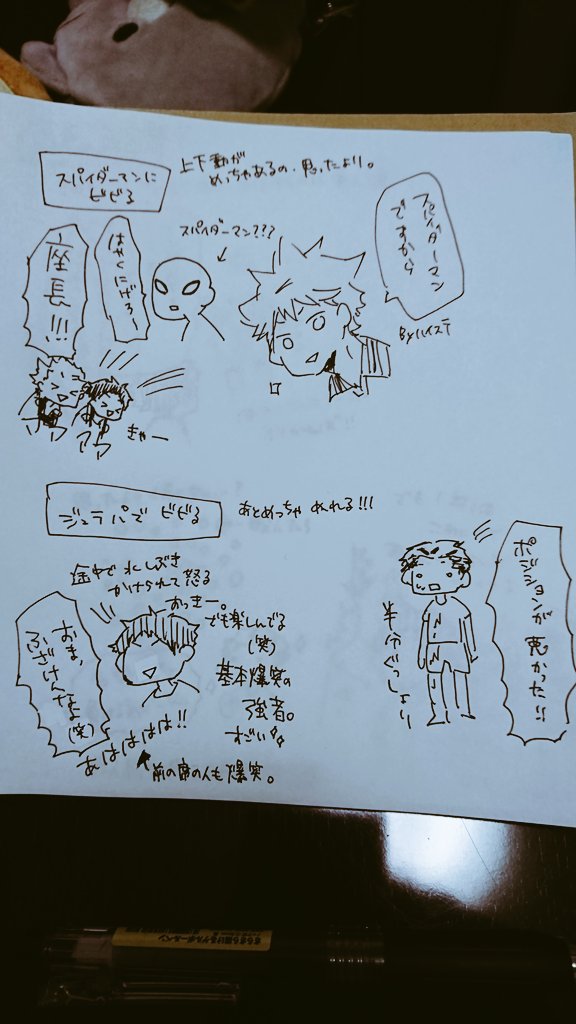 スパイダーマンに
ビビる
上下動が
めっちゃあるの、思ったより。
スパイダーマン
ですから
Byハイステ
スパイダーマン???
はやくにげろー
座長!!!
きゃー
ロ
ジュラパで ビビる
あとめっちゃ ぬれる!!!
ポジションが
悪かった!!
半分ぐっしょり
途中で 水しぶき
かけられて怒る
おっきー。
でも楽しんでる
(笑)
基本爆笑の
強者。
すごい
おま、
ふざけんなま
(笑)
あはははは!!
前の席の人も爆笑。